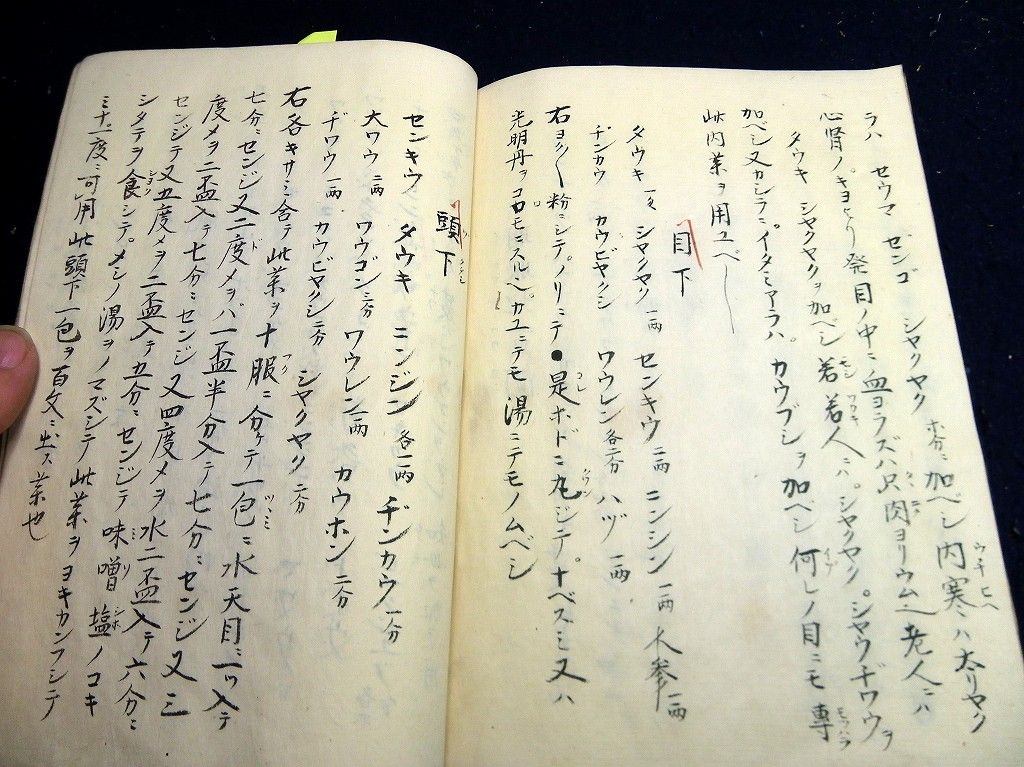 ラハ セウマ ゼンゴ シヤクヤク 加ベシ 内寒ハ大リヤク
心腎ノキヨヨリ発目ノ中ニ血ヨラズハ只肉ヨリウム 老人ニハ
タウキ シヤクヤクヲ加ベシ 若若人ニハ シヤクヤク シヤウヂワウヲ
加ベシ又カシラニイタミアラハ カウブシヲ加ベシ 何レノ目ニモ専
此内薬ヲ用ユベシ
目下
タウキ シヤクヤク 一両 センキウ 二両 ニンシン 一両 一両
ヂンカウ カウビヤクシ ワウレン 各二分 ハヅ 一両
右ヨク〱粉ニシテノリニテ●是ホドニ丸ジテ 十ベスミ又ハ
光明丹ヲコロモニスルヘカユニテモ湯ニテモノムベシ
頭下
センキウ タウキ ニンジン 各一両 ヂンカウ 一分
大ワウ 二両 ワウゴン 三分 ワウレン 一両 カウホン 二分
ヂワウ 一両 カウビヤクシ 二分 シヤクヤク 二分
右各キザミ合テ此薬ヲ十服ニ分ケテ一包ニ水天目ニ一ツ入テ
七分ニセンジ又二度メヲバ一盃半分入テ七分ニセンジ又三
度メヲ二盃入テ七分ニセンジ又四度メヲ水二盃入テ六分ニ
センジテ又五度メヲ二盃入テ五分ニセンジテ味噌塩ノコキ
シタテヲ食シテメシノ湯ヲノマズシテ此薬ヲヨキカンフシテ
三十一度ニ可用此頭下一包ヲ百文ニ出ス薬也